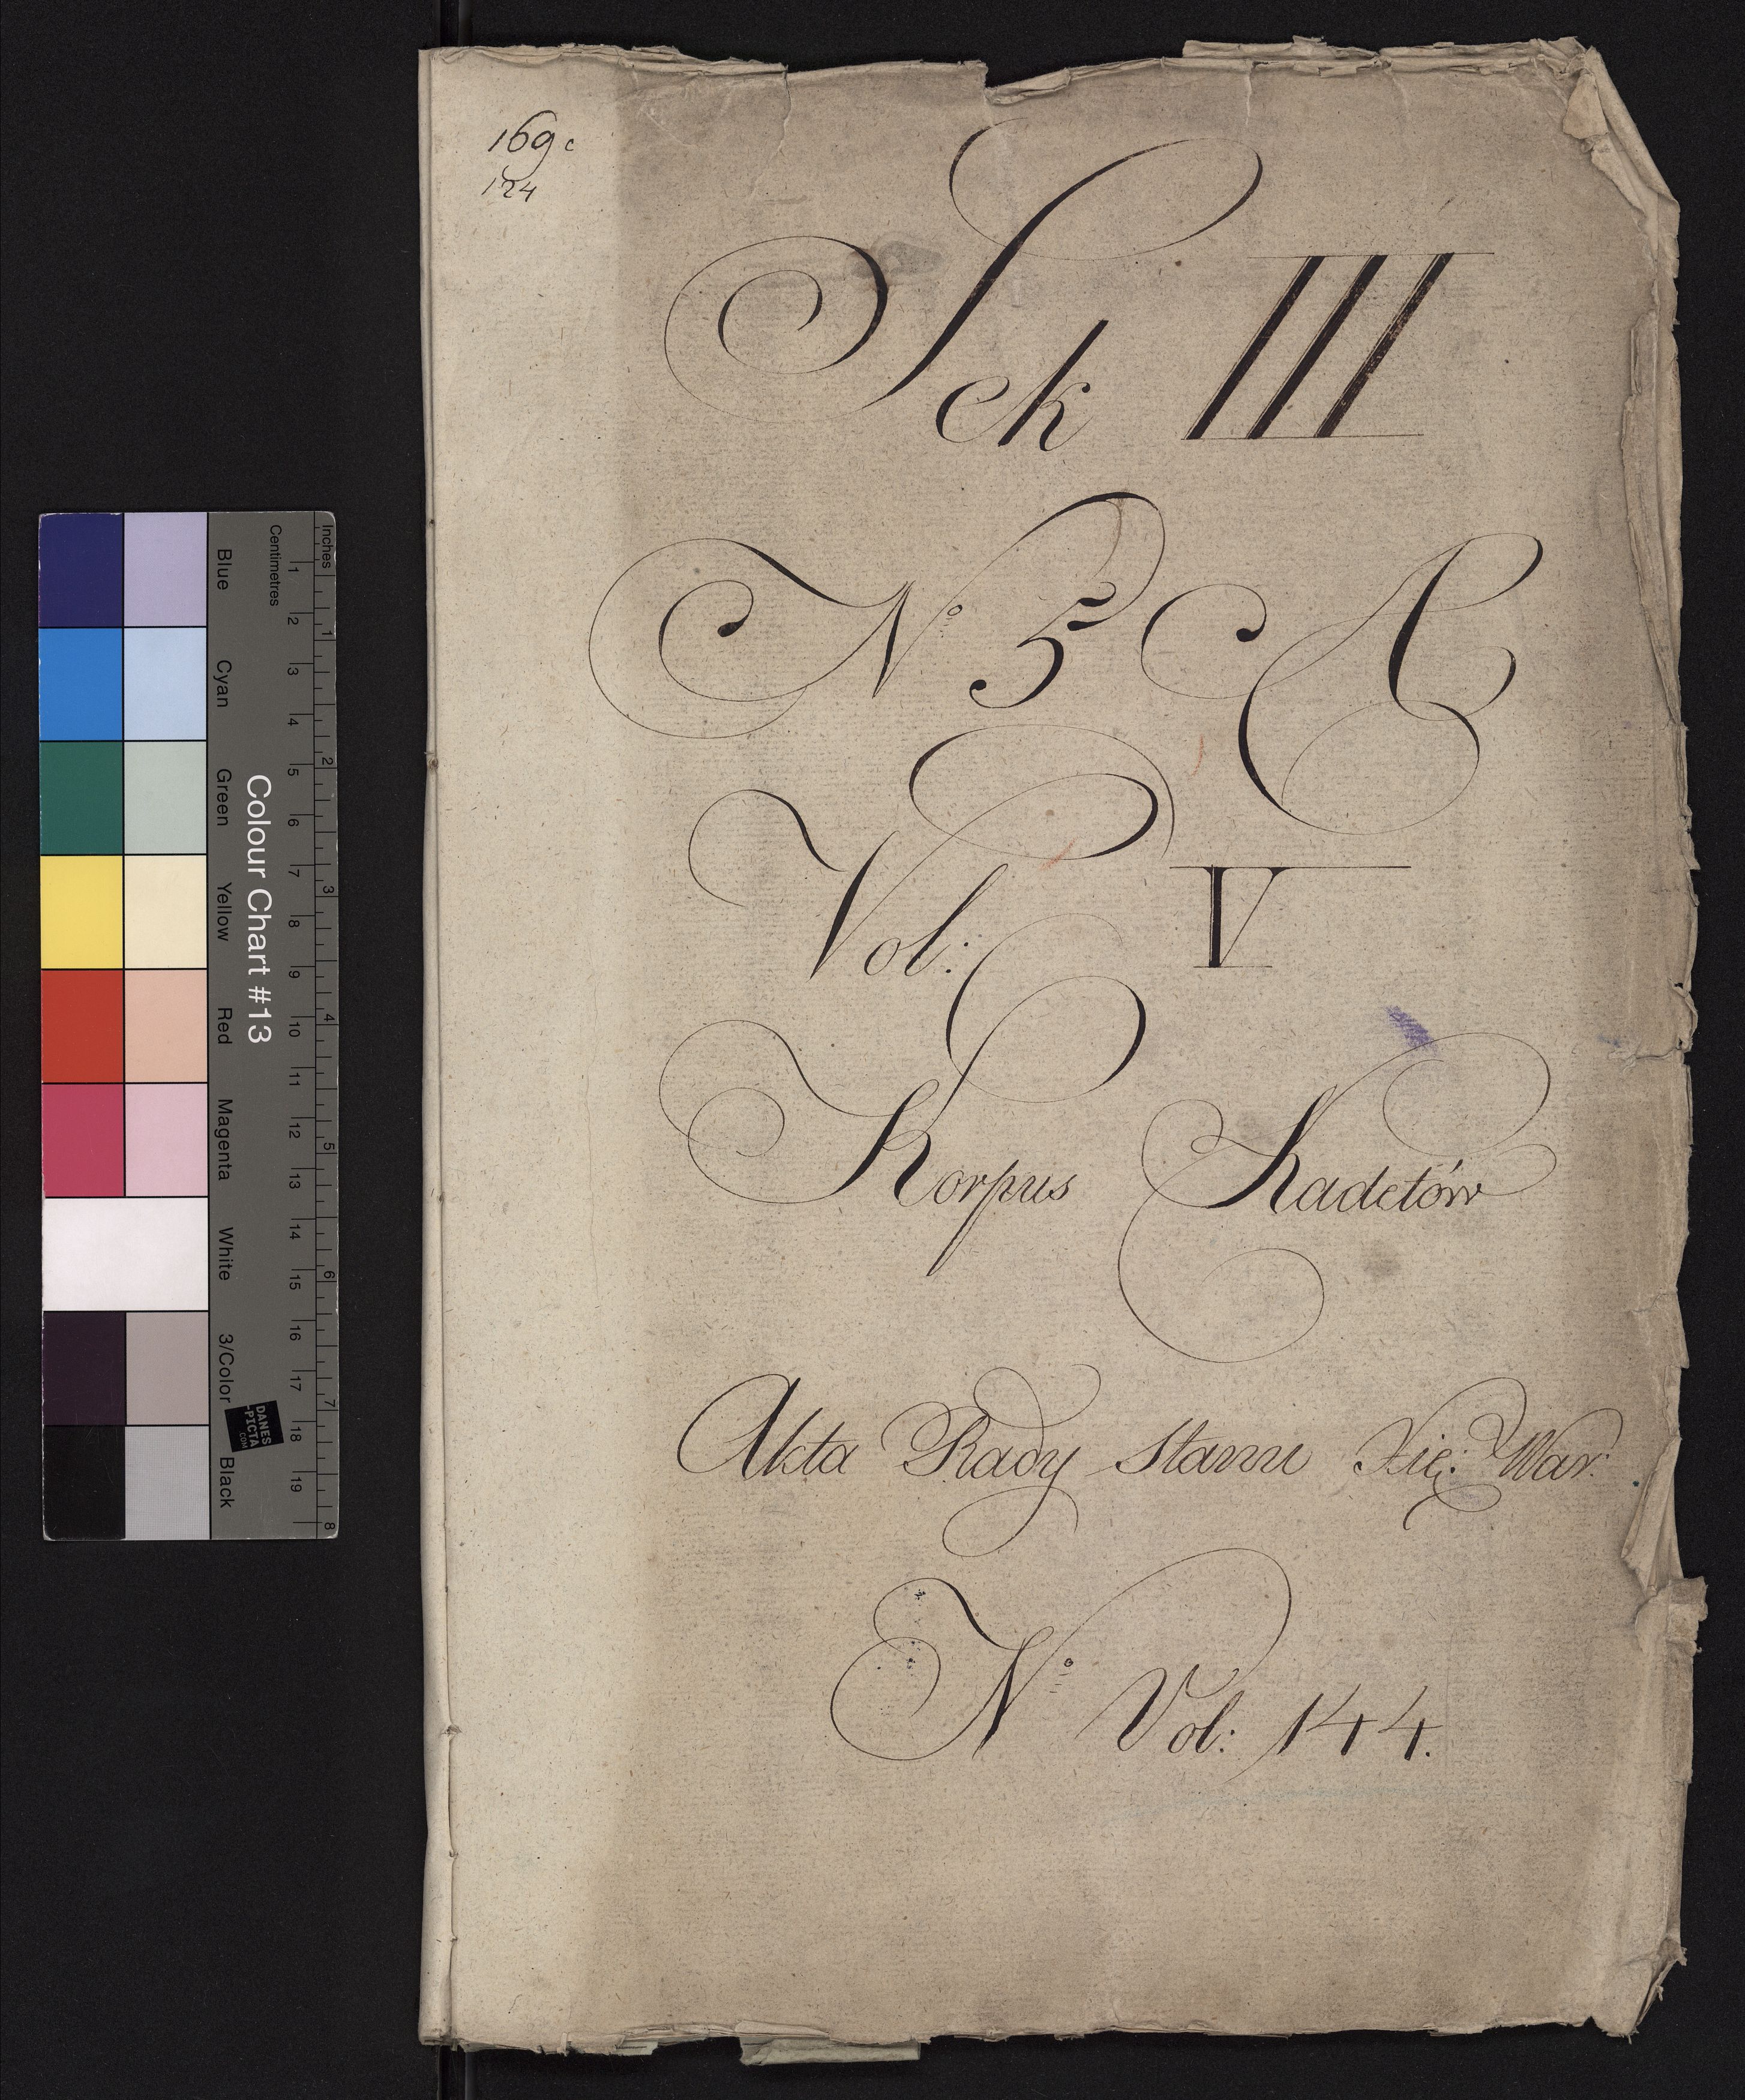 169 c
124
Sek III
No 5 A
Vol: V
Korpus Kadetów
Akta Rady Stanu Xię: War:
No Vol: 144.
Inches
Centimetres
1 2 3 4 5 6 7 8
1 2 3 4 5 6 7 8 9 10 11 12 13 14 15 16 17 18 19
Colour Chart #13
Blue Cyan Green Yellow Red Magenta White 3/Color Black
DANES
-PICTA
.COM